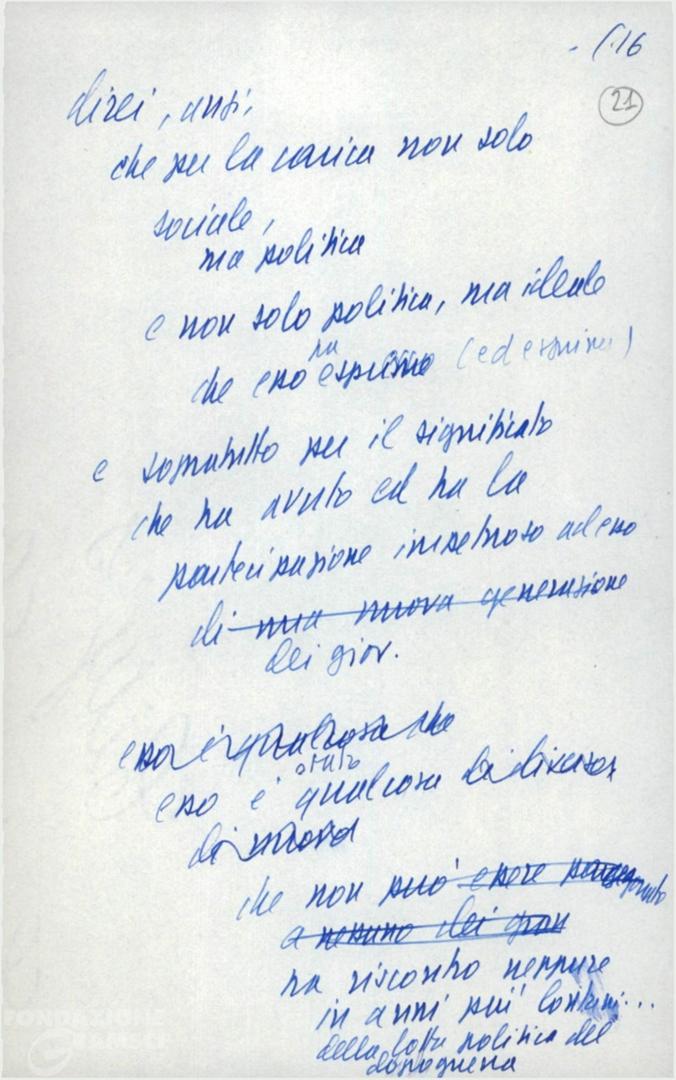 - 1.16
21
direi, anzi,
che per la carica non solo
sociale,
ma politica
e non solo politica, ma ideale
che esso ha espresso (ed esprime)
e sopratutto per il significato
che ha avuto ed ha la
partecipazione impetuosa ad esso
di una nuova generazione
dei giov.
esso è qualcosa che
esso è stato qualcosa di diverso
di nuovo
che non può essere paragonato
a nessuno dei gran
ha riscontro neppure
in anni più lontani...
della lotta politica del
dopoguerra
FONDAZIONE
GRAMSCI